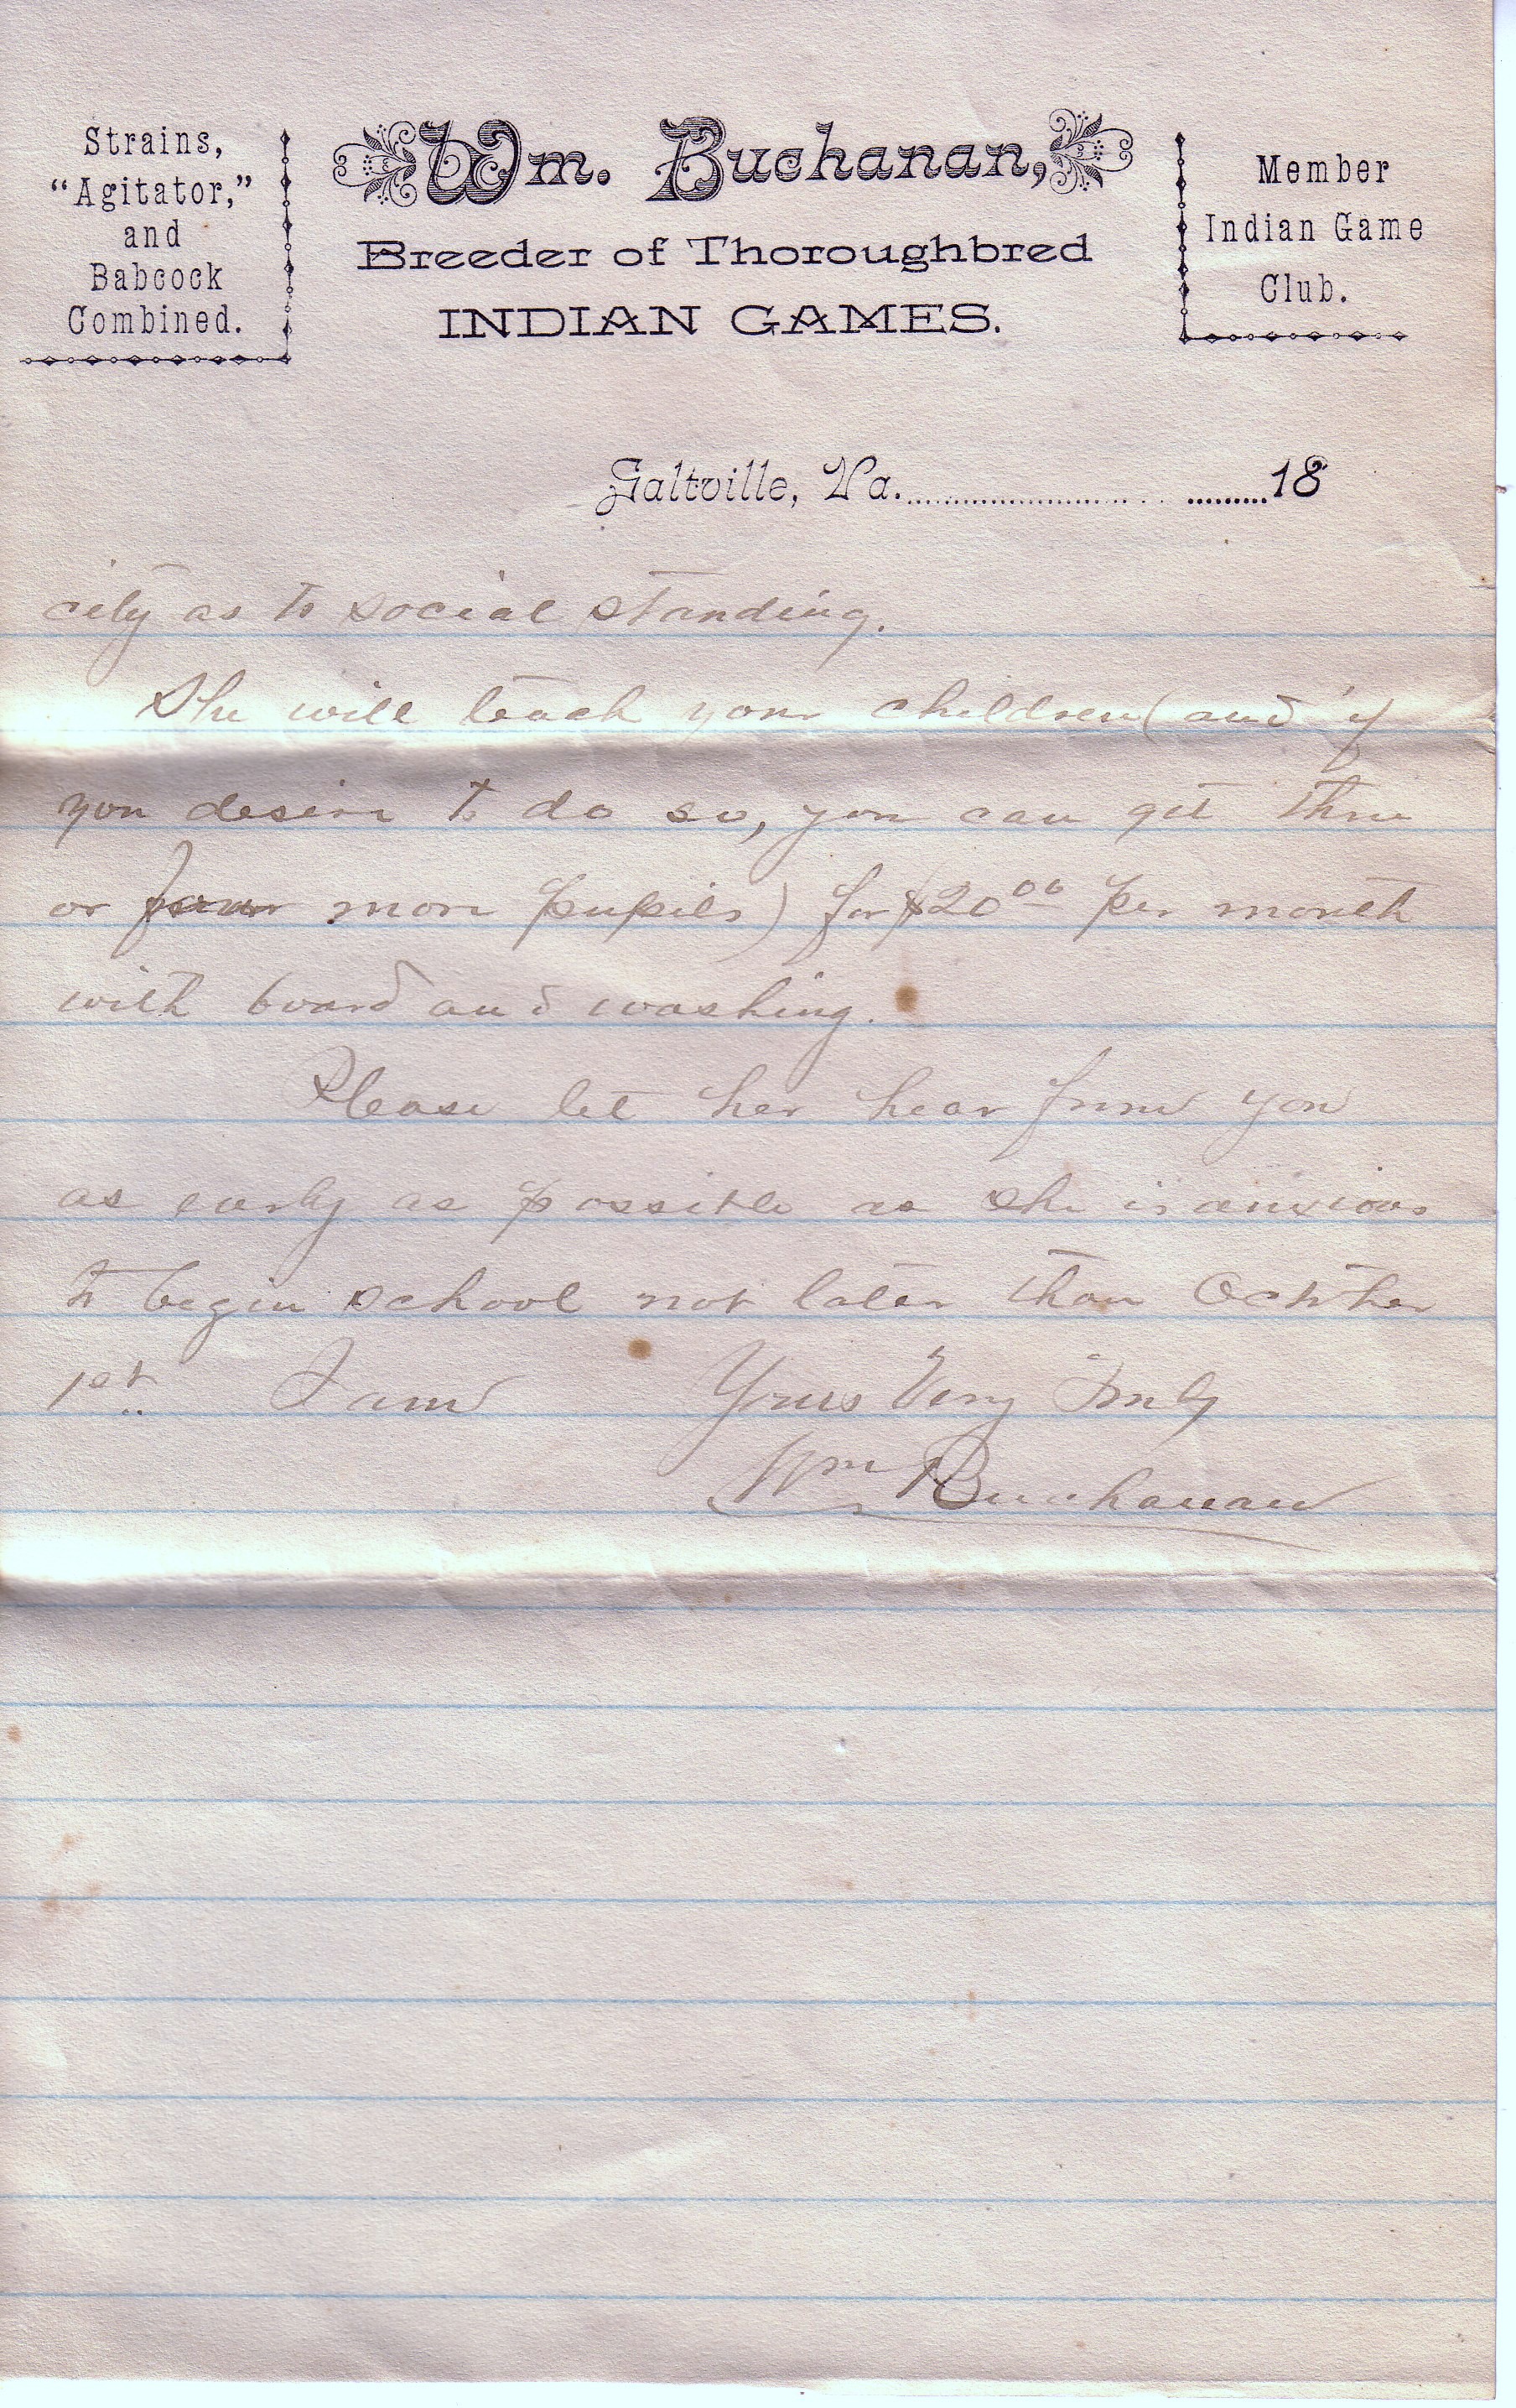 Strains,
"Agitator,"
and
Babcock
Combined.
Wm. Buchanan,
Breeder of Thoroughbred
INDIAN GAMES.
Member
Indian Game
Club.
Saltville, Va. 18
city as to social standing.
She will teach your children (and if
you desire to do so, you can get three
or four more pupils) for $20 00 per month
with board and washing.
Please let her hear from you
as early as possible as she is anxious
to begin school not later than October
1st. I am Yours Very Truly
Wm Buchanan